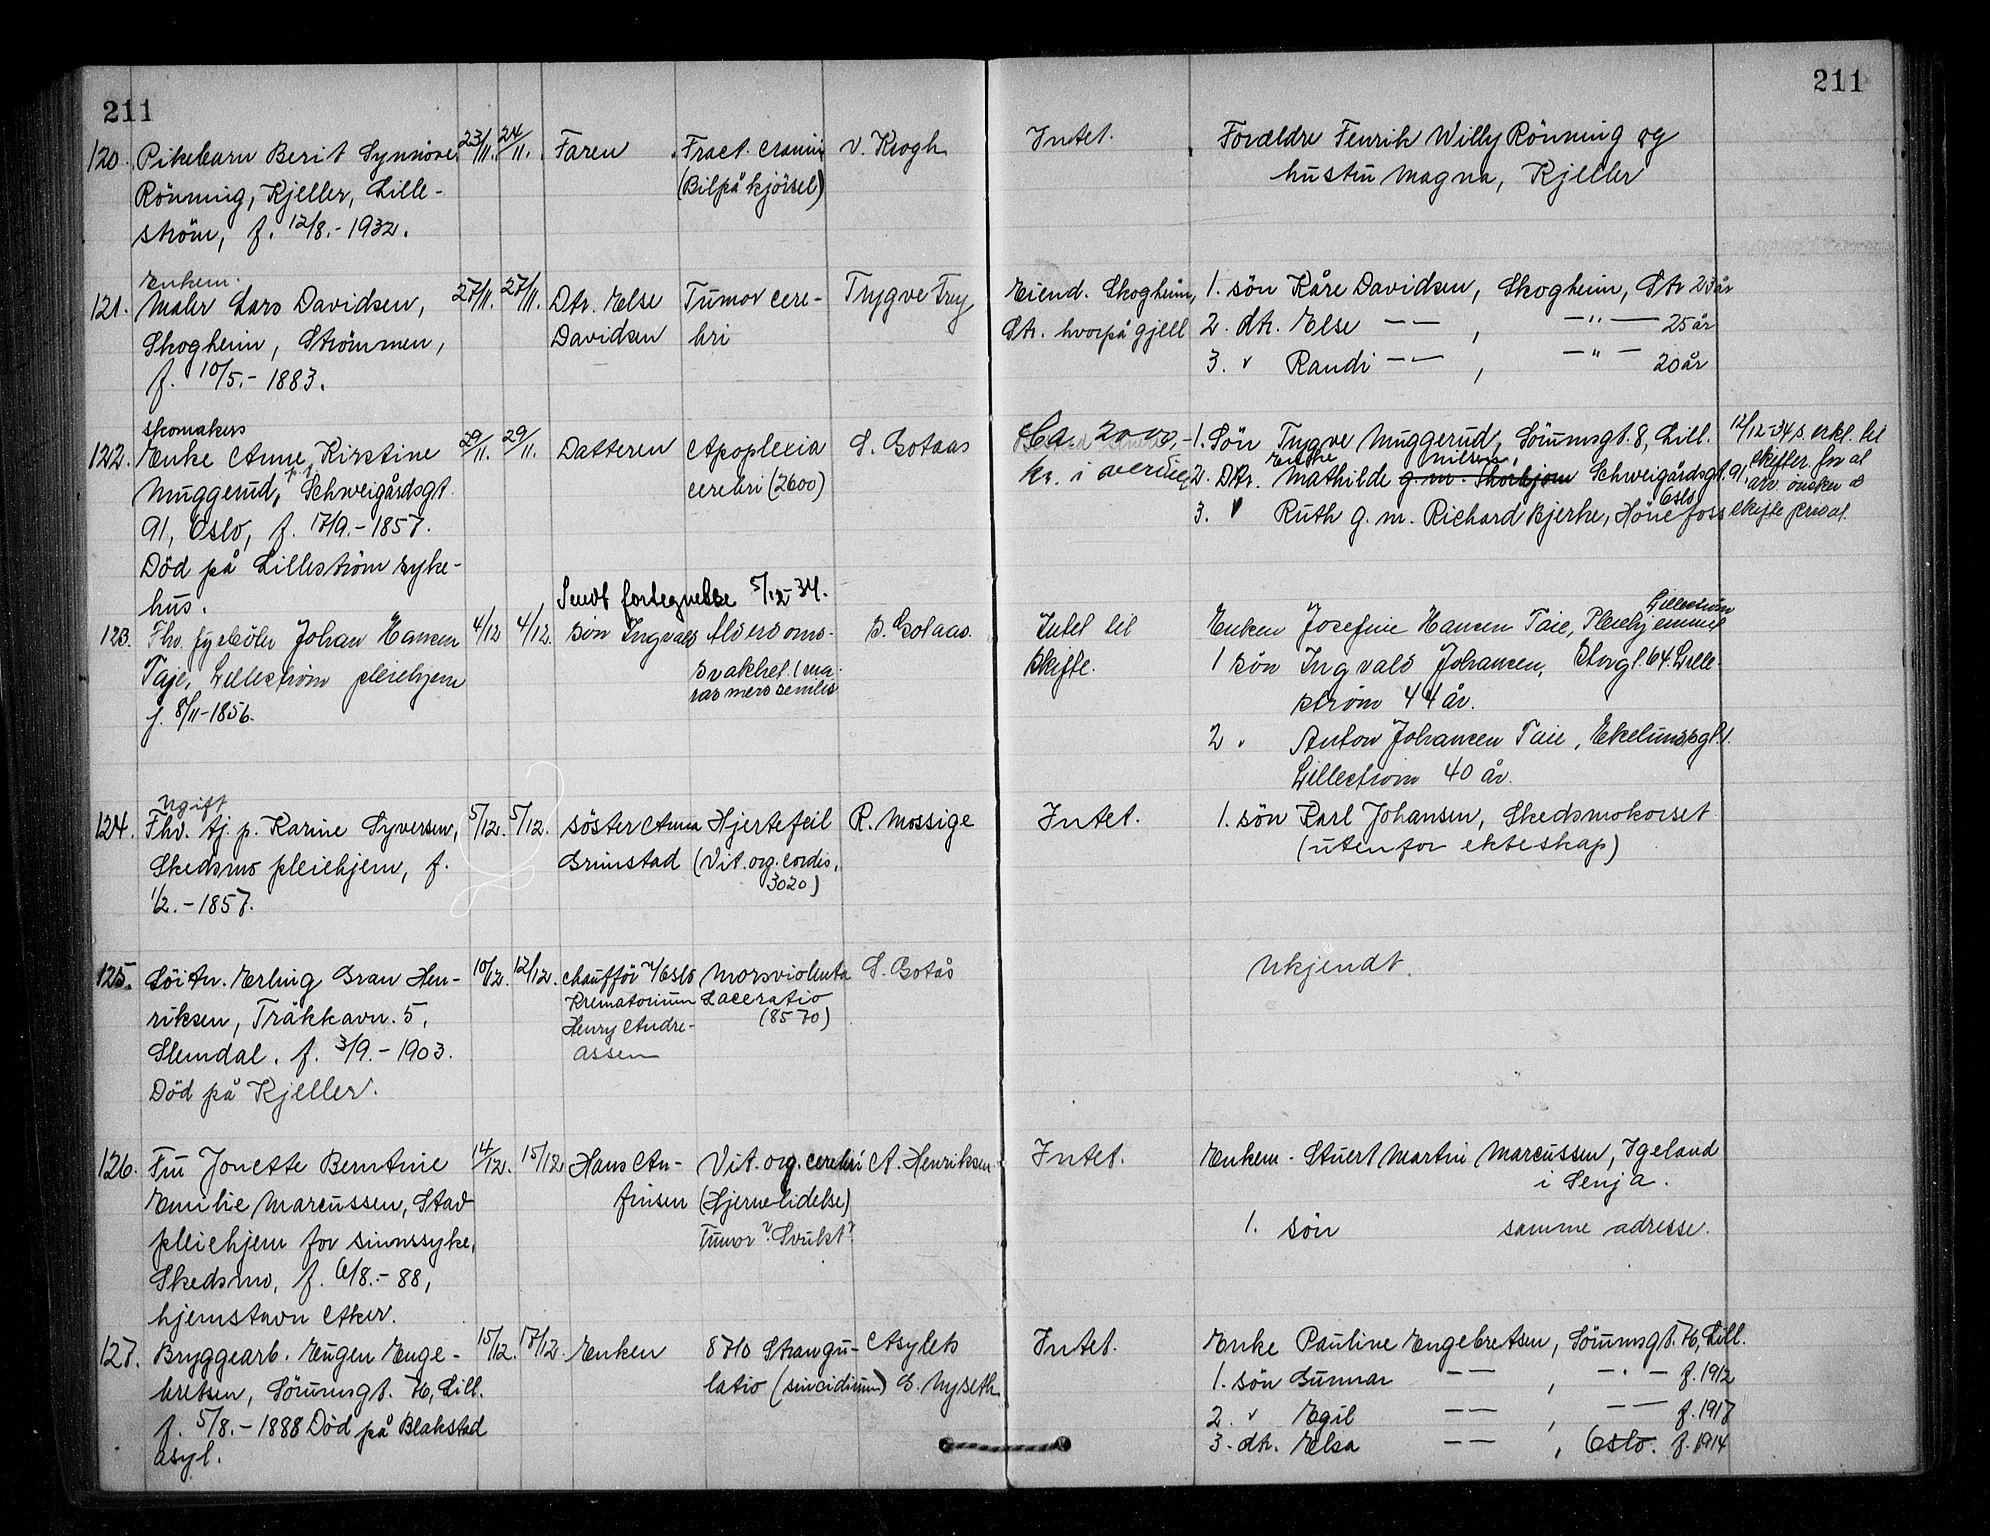 211
211
120. Pikebarn Berit Synnöve 23/11. 24/11. Faren Fract. cranii v. Krogh Intet. Forældre Fenrik Willy Rönning og
Rönning, Kjeller, Lille- (Bilpåkjörsel) hustru Magna, Kjeller
ström, f. 12/8.-1932.
Enkem.
121. Maler Lars Davidsen, 27/11. 27/11. Dtr. Else Tumor cere- Trygve Frey Eiend. Skogheim, 1. sön Kåre Davidsen, Skogheim, Str 23 år
Skogheim, Strömmen, Davidsen bri Str. hvorpå gjeld 2. dtr. Else — — , — " — 25 år
f. 10/5.-1883. 3. " Randi — — , — " — 20 år
skomakers
122. Enke Anne Kirstine 29/11. 29/11. Datteren Apoplexia S. Gotaas Ca. 2000,- 1. Sön Trygve Muggerud, Sörumsgt. 8, Lill. 12/12-34 s. erkl. til
Muggerud, Schweigårdsgt. cerebri (2600) kr. i 2. Dtr. Enke Mathilde g. m. Thorbjörn Nilsen, Schweigårdsgt. 91, Oslo skifter. for at arv. önsker å
91, Oslo, f. 17/9.-1857. 3. " Ruth g. m. Richard Bjerke, Hönefoss skifte privat.
Död på Lilleström syke-
hus. Sendt fortegnelse 5/12-34.
123. Fhv. Johan Hansen 4/12 4/12. Sön Ingvald Alderdoms- S. Gotaas. Intet til Enken Josefine Hansen Taie, Pleiehjemmet Lilleström
Taje, Lilleström pleiehjem svakhet. (ma- skifte. 1 sön Ingvald Johansen, Storgt. 64. Lille-
f. 8/11-1856. rasmus senilis ström 44 år.
2 " Anton Johansen Taie, Ekelundsgt. 1.
Lilleström 40 år.
Ugift
124. Fhv. tj. p. Karine Syversen, 5/12. 5/12. söster Anna Hjertefeil R. Mossige Intet. 1. sön Karl Johansen, Skedsmokorset
Skedsmo pleiehjem, f. Grimstad (Vit. org. cordis, (utenfor ekteskap)
1/2.-1857. 3020)
125. Löitn. Erling Gran Hen- 10/12. 12/12. Chaufför v/Oslo Mors violenta S. Gotås Ukjendt.
riksen, Tråkkavn. 5, Krematorium Laceratio
Slemdal. f. 3/9.-1903. Henry Andre- (8570)
Död på Kjeller. assen
126. Fru Jonette Berntine 14/12. 15/12 Hans An- Vit. org. cerebri A. Henriksen. Intet. Enkem. Stuert Martin Marcussen, Igeland
Emilie Marcussen, Stav finsen (Hjernelidelse) i Senja.
pleiehjem for sinnssyke, Tumor? Svulst? 1. sön samme adresse.
Skedsmo, f. 6/8.-88,
hjemstavn Aker.
127. Bryggearb. Eugen Enge- 15/12. 17/12. Enken 8710 Strangu- Asylets Intet. Enke Pauline Engebretsen, Sörumsgt. 76, Lill.
bretsen, Sörumsgt. 76, Lill. latio (suicidium) G. Nyseth 1. sön Gunnar — — , — " — f. 1912
f. 5/8.-1888 Död på Blakstad 2. " Egil — — , — — f. 1917
asyl. 3. dtr. Elsa — — , Oslo. f. 1914